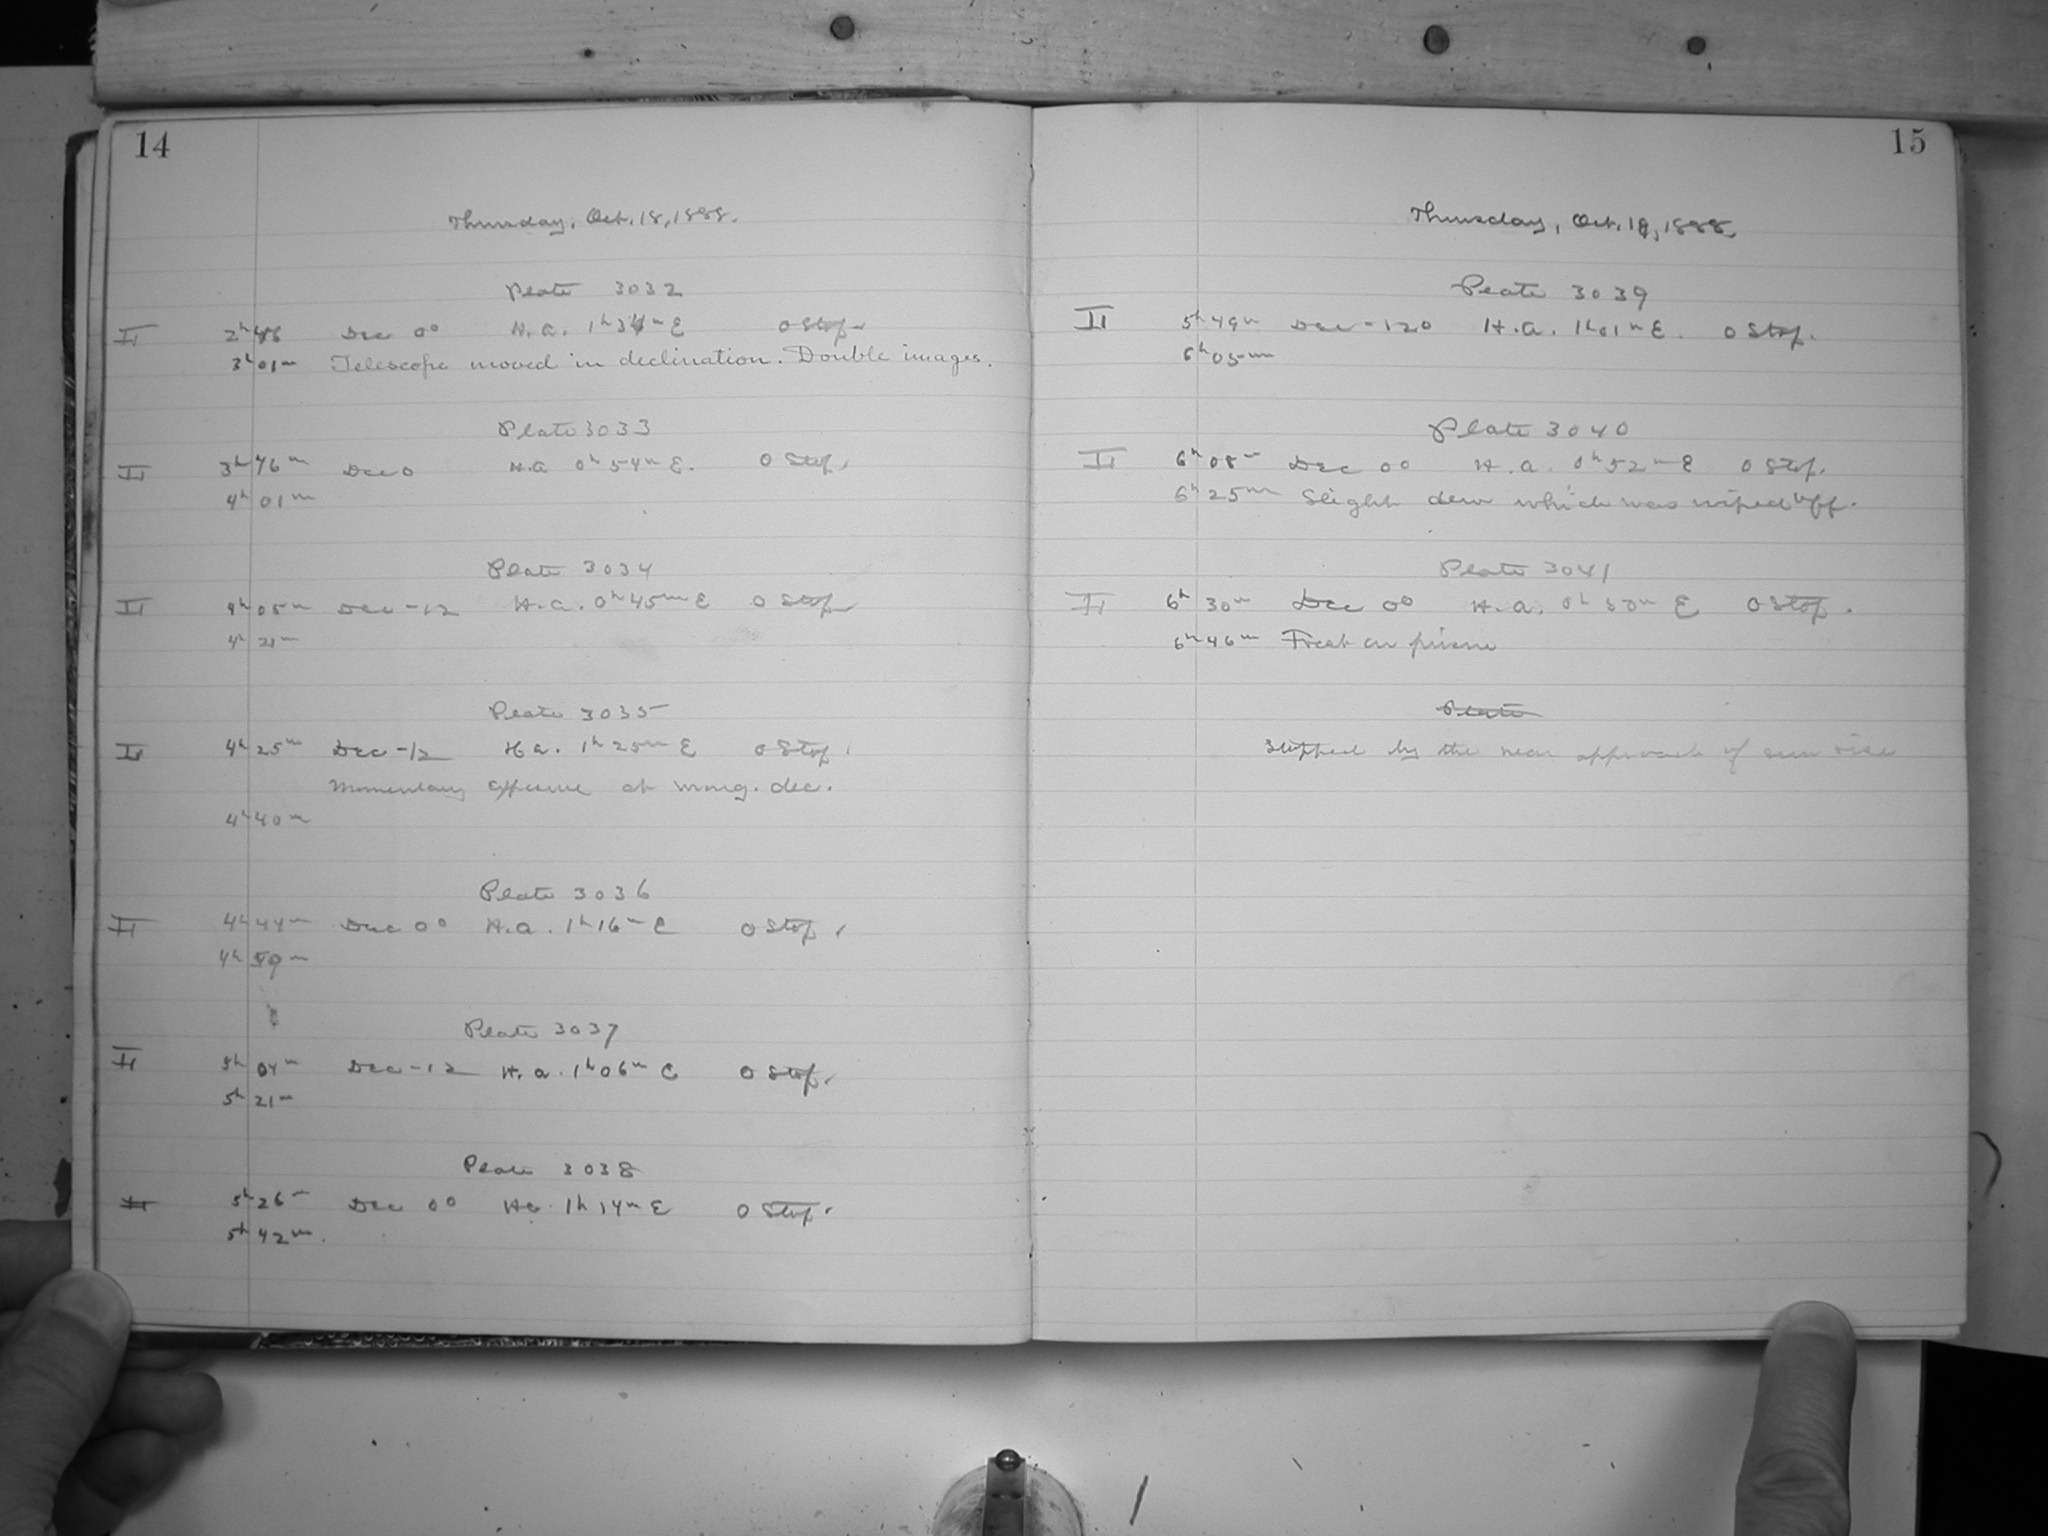 14
Thursday, Oct. 18, 1888.
Plate 3032
II 2h46 Dec 0° H.a. 1h34m E 0 Stop
3h01m Telescope moved in declination. Double images.
Plate 3033
II 3h46m Dec 0 H.a 0h54m E. 0 Stop.
4h01m
Plate 3034
II 4h05m Dec -12 H.a. 0h45m E 0 Stop
4h21m
Plate 3035
II 4h25m Dec -12 H a. 1h25m E 0 Stop.
Momentary exposure at wrong. dec.
4h40m
Plate 3036
II 4h44m Dec 0° H.a. 1h16m E 0 Stop.
4h59m
Plate 3037
II 5h04m Dec -12 H.a. 1h06m E 0 Stop.
5h21m
Plate 3038
II 5h26m Dec 0° Ha. 1h14m E 0 Stop.
5h42m.
15
Thursday, Oct. 18, 1888.
Plate 3039
II 5h49m Dec -12° H.a. 1h01m E. 0 Stop.
6h05m
Plate 3040
II 6h08m Dec 0° H.a. 0h52m E 0 Stop.
6h25m Slight dew which was wiped off.
Plate 3041
II 6h30m Dec 0° H.a. 0h30m E 0 Stop.
6h46m Frost on prism
Plate
Stopped by the near approach of sun rise